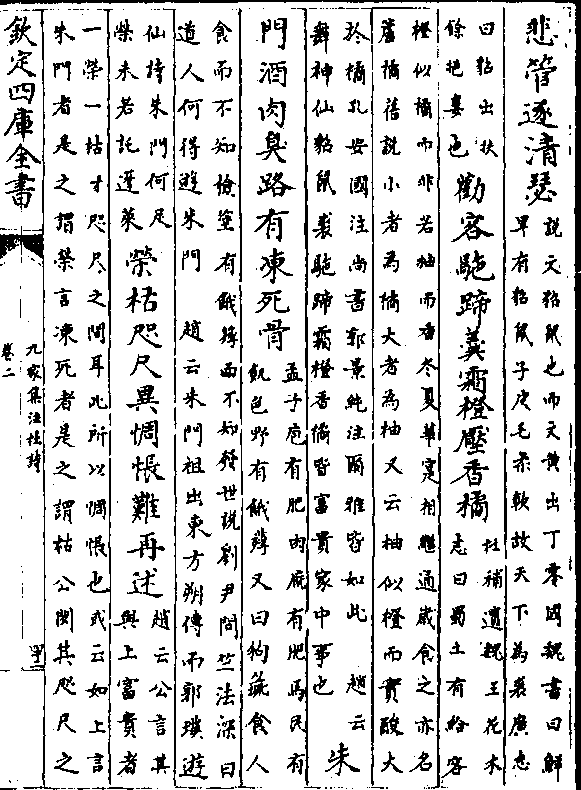 悲管逐清瑟
說文貂鼠也而大黄出丁零國魏書曰鮮
卑有貂鼠子皮毛柔軟故天下為裘廣志
曰貂出扶
餘挹婁也
勸客駞蹄羹霜橙壓香橘
杜補遺魏王花木
志曰蜀土有給客
橙似橘而非若柚而香冬夏華實相繼通歲食之亦名
蘆橘舊說小者為橘大者為柚又云柚似橙而實酸大
於橘孔安國注尚書郭景純注爾雅皆如此 趙云
舞神仙貂鼠裘駞蹄霜橙香橘皆富貴家中事也
朱
門酒肉臭路有凍死骨
孟子庖有肥肉廐有肥馬民有
飢色野有餓莩又曰狗彘食人
食而不知檢塗有餓莩而不知發世說劉尹問竺法深曰
道人何得遊朱門 趙云朱門祖出東方朔傳而郭璞遊
仙詩朱門何足
榮未若託蓬萊
榮枯咫尺異惆悵難再述
趙云公言其
與上富貴者
一榮一枯才咫尺之間耳此所以惆悵也或云如上言
朱門者是之謂榮言凍死者是之謂枯公閔其咫尺之
欽定四庫全書
九家集注杜詩
卷二